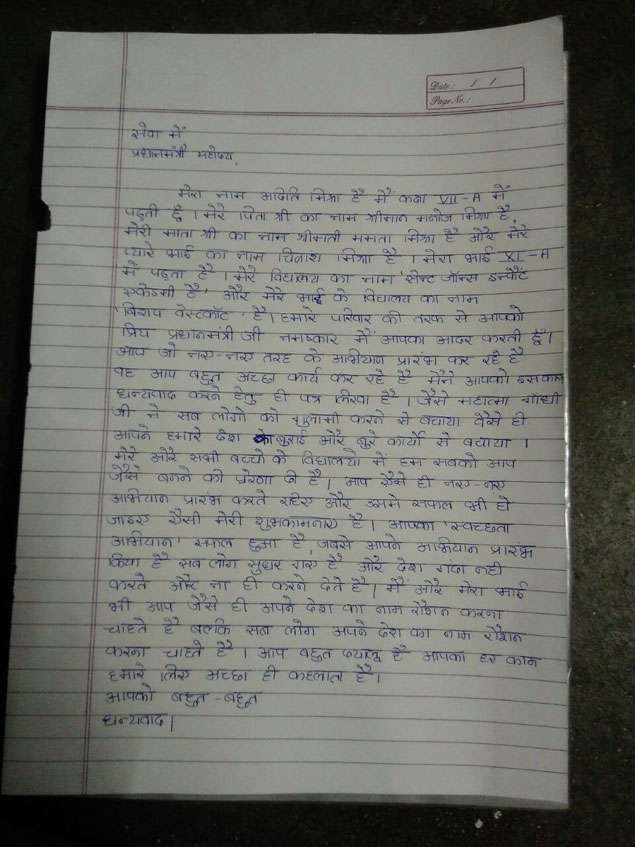 Date: / /
Page No.:
सेवा में
प्रधानमंत्री महोदय,
मेरा नाम अदिति मिश्रा है मैं कक्षा VII-A में
पढ़ती हूँ। मेरे पिता श्री का नाम श्रीमान मनोज मिश्रा है,
मेरी माता श्री का नाम श्रीमती ममता मिश्रा है और मेरे
प्यारे भाई का नाम मिश्रा है। मेरा भाई XI-A
में पढ़ता है। मेरे विद्यालय का नाम 'सेन्ट जॉन्स
एकेडमी है' और मेरे भाई के विद्यालय का नाम
'बिशप वेस्टकॉट' है। हमारे परिवार की तरफ से आपको
प्रिय प्रधानमंत्री जी नमष्कार मैं आपका आदर करती हूँ।
आप जो नए-नए तरह के अभियान प्रारंभ कर रहे है
वह आप बहुत अच्छा कार्य कर रहे है मैंने आपको इस
धन्यवाद करने हेतु ही पत्र लिखा है। जैसे महात्मा गाँधी
जी ने सब लोगो को गुलामी करने से बचाया वैसे ही
आपने हमारे देश को बुराई और बुरे कार्यो से बचाया।
मेरे और सभी बच्चो के विद्यालयो में हम सबको आप
जैसे बनने की प्रेरणा दी है। आप ऐसे ही नए-नए
अभियान प्रारंभ करते रहिए और उसमे सफल भी हो
जाइए ऐसी मेरी शुभकामनाए है। आपका 'स्वच्छता
अभियान' सफल हुआ है, जबसे आपने अभियान प्रारंभ
किया है सब लोग सुधर गए है और देश गंदा नही
करते और ना ही करने देते है। मैं और मेरा भाई
भी आप जैसे ही अपने देश का नाम रौशन करना
चाहते है बलकि सब लोग अपने देश का नाम रौशन
करना चाहते है। आप बहुत दयालू है आपका हर काम
हमारे लिए अच्छा ही कहलाता है।
आपको बहुत-बहुत
धन्यवाद।